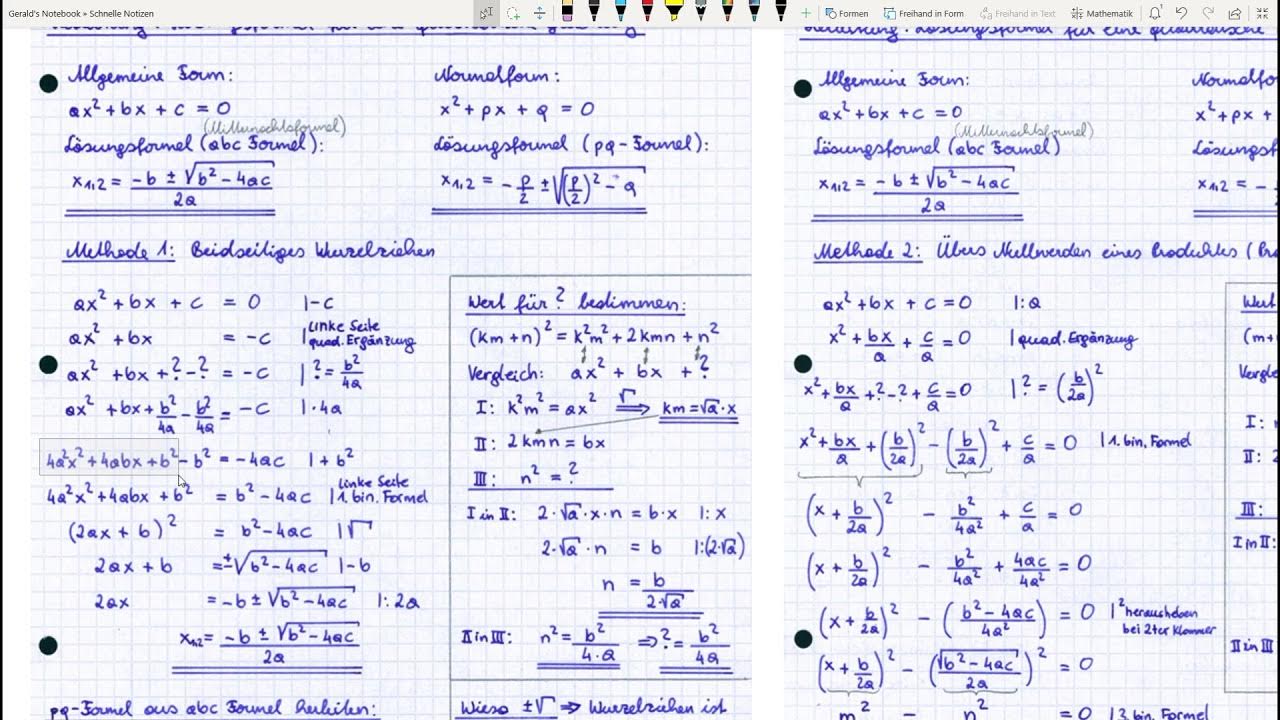 Gerald's Notebook » Schnelle Notizen
Formen
Freihand in Form
Freihand in Text
Mathematik
Allgemeine Form:
ax² + bx + c = 0
(Mitternachtsformel)
Lösungsformel (abc Formel):
x₁,₂ = (-b ± √(b² - 4ac)) / 2a
Normalform:
x² + px + q = 0
Lösungsformel (pq-Formel):
x₁,₂ = -p/2 ± √((p/2)² - q)
Methode 1: Beidseitiges Wurzelziehen
ax² + bx + c = 0 |-c
ax² + bx = -c | Linke Seite quad. Ergänzung
ax² + bx + ? - ? = -c | ? = b²/4a
ax² + bx + b²/4a - b²/4a = -c | · 4a
4a²x² + 4abx + b² - b² = -4ac | + b²
4a²x² + 4abx + b² = b² - 4ac | Linke Seite 1. bin. Formel
(2ax + b)² = b² - 4ac | √
2ax + b = ±√(b² - 4ac) | -b
2ax = -b ± √(b² - 4ac) | : 2a
x₁,₂ = (-b ± √(b² - 4ac)) / 2a
pq-Formel aus abc Formel herleiten:
Wert für ? bestimmen:
(km + n)² = k²m² + 2kmn + n²
Vergleich: ax² + bx + ?
I: k²m² = ax² √⟹ km = √a · x
II: 2kmn = bx
III: n² = ?
I in II: 2 · √a · x · n = b · x | : x
2 · √a · n = b | : (2 · √a)
n = b / (2 · √a)
II in III: n² = b² / (4 · a) ⇒ ? = b² / 4a
Wieso ±√ ⇒ Wurzelziehen ist
Allgemeine Form:
ax² + bx + c = 0
(Mitternachtsformel)
Lösungsformel (abc Formel)
x₁,₂ = (-b ± √(b² - 4ac)) / 2a
Normalfo
x² + px +
Lösungsf
x₁,₂ = -
Methode 2: Übers Nullwerden eines Produktes (
ax² + bx + c = 0 | : a
x² + bx/a + c/a = 0 | quad. Ergänzung
x² + bx/a + ? - ? + c/a = 0 | ? = (b/2a)²
x² + bx/a + (b/2a)² - (b/2a)² + c/a = 0 | 1. bin. Formel
(x + b/2a)² - b²/4a² + c/a = 0
(x + b/2a)² - b²/4a² + 4ac/4a² = 0
(x + b/2a)² - ((b² - 4ac)/4a²) = 0 | ² herausheben bei 2ter Klammer
(x + b/2a)² - (√(b² - 4ac)/2a)² = 0
m² - n² = 0 | 3. bin. Formel
Wert
(m +
Vergle
I:
II: 2
III:
I in II:
II in III